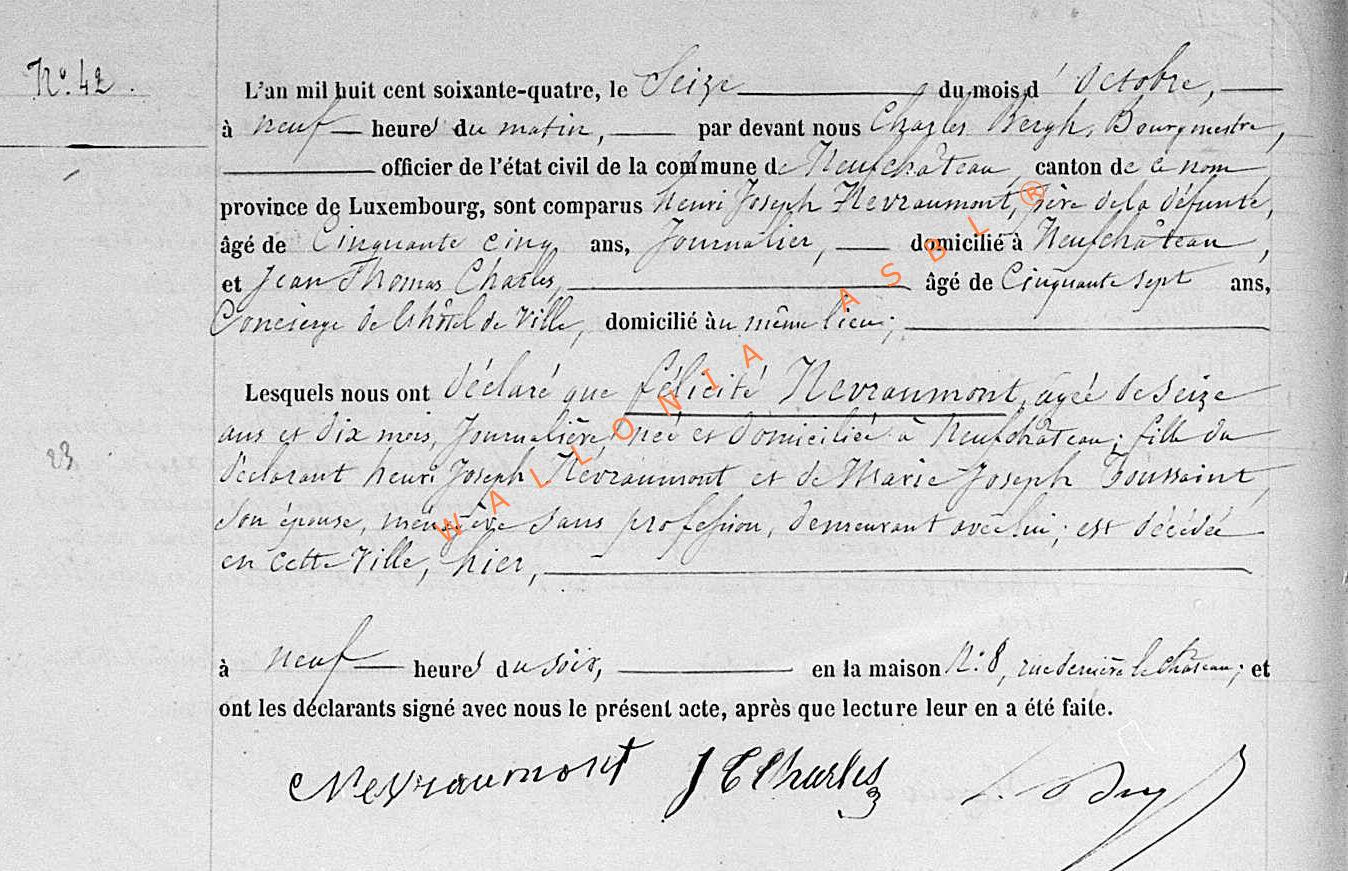 N.° 42.
L'an mil huit cent soixante-quatre, le Seize du mois d'Octobre,
à neuf heures du matin, par devant nous Charles Bergh, Bourgmestre,
officier de l'état civil de la commune de Neufchâteau, canton de ce nom,
province de Luxembourg, sont comparus henri Joseph Nevraumont, père de la défunte,
âgé de Cinquante cinq ans, Journalier, domicilié à Neufchâteau,
et Jean Thomas Charles, âgé de Cinquante sept ans,
Concierge de l'hôtel de Ville, domicilié au même lieu;
Lesquels nous ont déclaré que félicité Nevraumont, agée de seize
ans et dix mois, Journalière, née et domiciliée à Neufchâteau; fille du
déclarant henri Joseph Névraumont et de Marie Joseph Toussaint,
23
son épouse, menagère sans profession, demeurant avec lui; est décédée
en cette Ville, hier,
à neuf heures du soir, en la maison N.° 8, rue derrière le Château; et
ont les déclarants signé avec nous le présent acte, après que lecture leur en a été faite.
Nevraumont J T Charles
WALLONIA ASBL ®